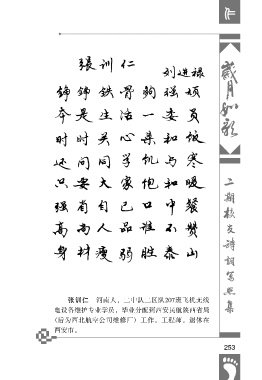 仁
歲月如歌
二期校友诗词写照集
張训仁
刘进禄
铮铮铁骨
是生活一委员
时时关心柴和饭
还问同学饥与寒
只要大家饱和暖
自己口中餐
高尚人品谁不赞
身材瘦弱胜泰山
张训仁 河南人,二中队二区队207班飞机无线
电设备维护专业学员,毕业分配到西安民航陕西省局
(后为西北航空公司维修厂)工作,工程师,退休在
西安市。
253